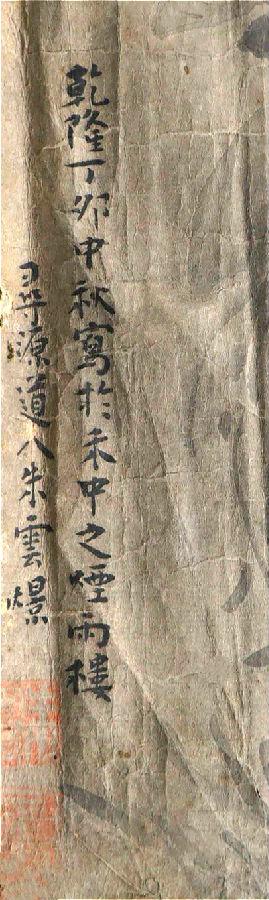 乾隆丁卯中秋寫於禾中之煙雨樓
源道人朱雲煝